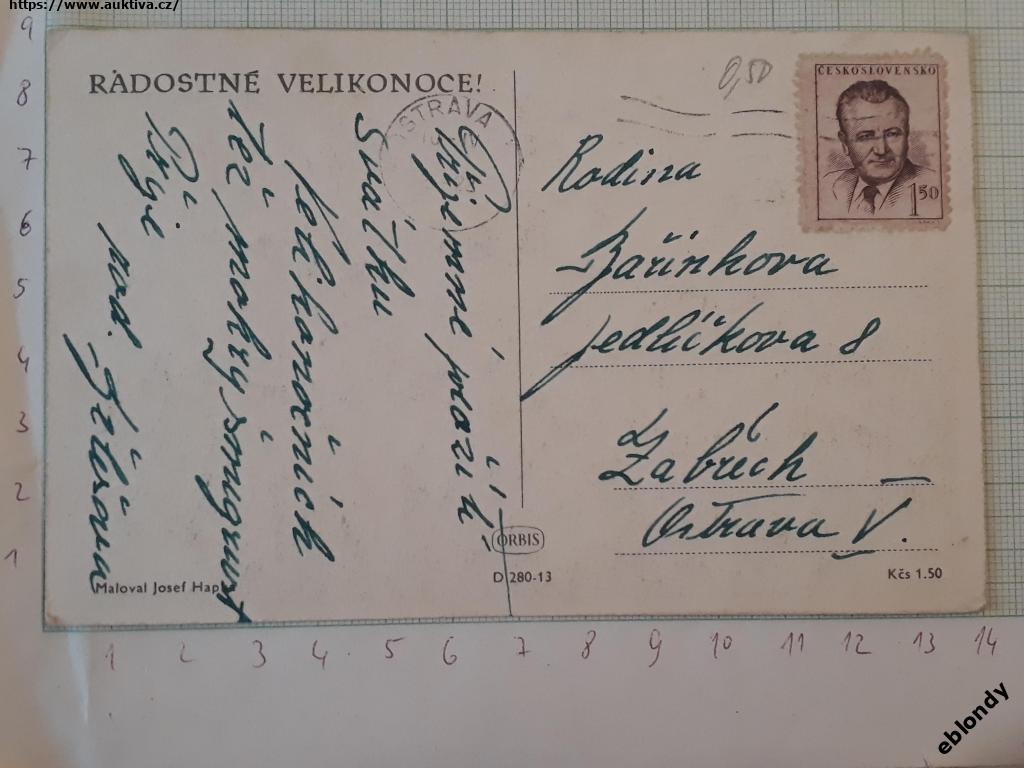 https://www.auktiva.cz/
RADOSTNÉ VELIKONOCE!
OSTRAVA
0,50
ČESKOSLOVENSKO
1 50
Příjemné prožití
Svátků
Velikonočních
též mokrý šmigrust
Přejí
rod.
Rodina
Bařínkova
Jedličkova 8
Zábřeh –
Ostrava V.
ORBIS
Maloval Josef Hap
D 280-13
Kčs 1.50
9
8
7
6
5
4
3
2
1
1 2 3 4 5 6 7 8 9 10 11 12 13 14
eblondy